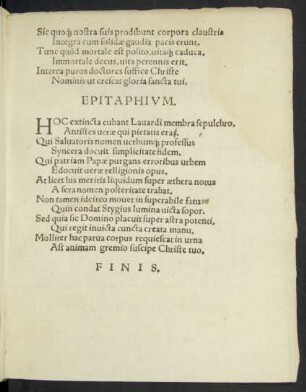 Sic quoq; nostra suis prodibunt corpora claustris
Integra cum solidæ gaudia pacis erunt.
Tunc quod mortale est posito, uitaq; caduca,
Immortale decus, uita perennis erit.
Interea puros doctores suffice Christe
Nominis ut crescat gloria sancta tui.
EPITAPHIVM.
HOC extincta cubant Lauardi membra sepulchro,
Antistes ueræ qui pietatis erat,
Qui Saluatoris nomen uerbumq; professus
Syncera docuit simplicitate fidem.
Qui patriam Papæ purgans erroribus urbem
Edocuit ueræ relligionis opus.
At licet his meritis liquidum super æthera notus
A sera nomen posteritate trahat.
Non tamen idcirco mouet insuperabile fatum
Quin condat Stygius lumina uicta sopor.
Sed quia sic Domino placuit super astra potenti,
Qui regit inuicta cuncta creata manu,
Molliter hac parua corpus requiescat in urna
Ast animam gremio suscipe Christe tuo.
FINIS.